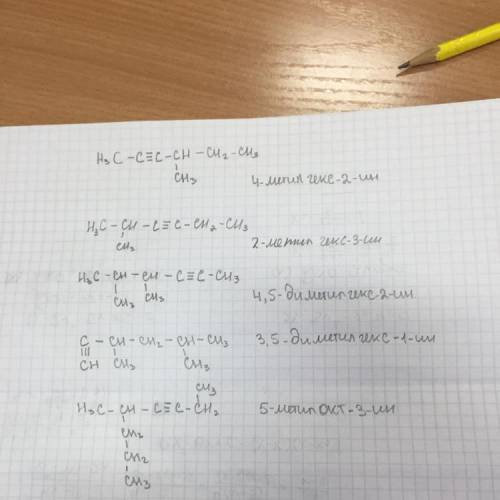 H₃C-C≡C-CH-CH₂-CH₃
CH₃
4-метил гекс-2-ин
H₃C-CH-C≡C-CH₂-CH₃
CH₃
2-метил гекс-3-ин
H₃C-CH-CH-C≡C-CH₃
CH₃ CH₃
4,5-диметил гекс-2-ин
C-CH-CH₂-CH-CH₃
CH CH₃ CH₃
3,5-диметил гекс-1-ин
CH₃
H₃C-CH-C≡C-CH₂
CH₂
CH₂
CH₃
5-метил окт-3-ин